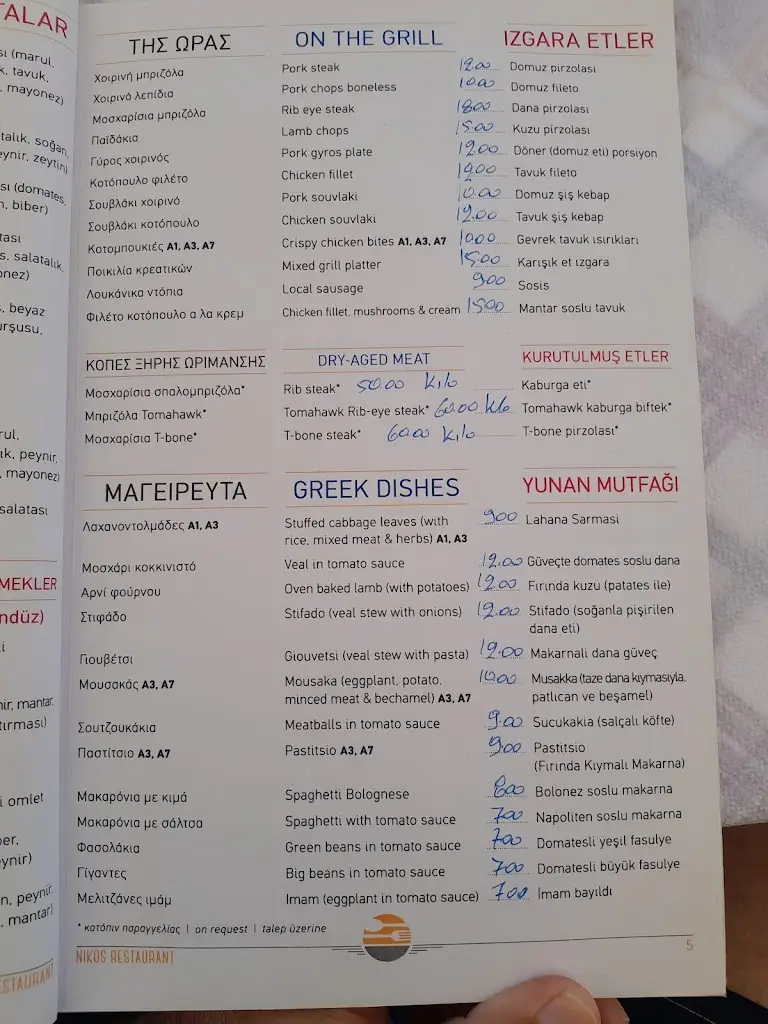 TALAR
ΤΗΣ ΩΡΑΣ ON THE GRILL IZGARA ETLER
Χοιρινή μπριζόλα Pork steak 12.00 Domuz pirzolası
Χοιρινά λεπίδια Pork chops boneless 10.00 Domuz fileto
Μοσχαρίσια μπριζόλα Rib eye steak 18.00 Dana pirzolası
Παϊδάκια Lamb chops 15.00 Kuzu pirzolası
Γύρος χοιρινός Pork gyros plate 12.00 Döner (domuz eti) porsiyon
Κοτόπουλο φιλέτο Chicken fillet 12.00 Tavuk fileto
Σουβλάκι χοιρινό Pork souvlaki 10.00 Domuz şiş kebap
Σουβλάκι κοτόπουλο Chicken souvlaki 12.00 Tavuk şiş kebap
Κοτομπουκιές A1, A3, A7 Crispy chicken bites A1, A3, A7 10.00 Gevrek tavuk ısırıkları
Ποικιλία κρεατικών Mixed grill platter 15.00 Karışık et ızgara
Λουκάνικα ντόπια Local sausage 9.00 Sosis
Φιλέτο κοτόπουλο α λα κρεμ Chicken fillet, mushrooms & cream 15.00 Mantar soslu tavuk
ΚΟΠΕΣ ΞΗΡΗΣ ΩΡΙΜΑΝΣΗΣ DRY-AGED MEAT KURUTULMUŞ ETLER
Μοσχαρίσια σπαλομπριζόλα* Rib steak* 50.00 kilo Kaburga eti*
Μπριζόλα Tomahawk* Tomahawk Rib-eye steak* 60.00 kilo Tomahawk kaburga biftek*
Μοσχαρίσια T-bone* T-bone steak* 60.00 kilo T-bone pirzolası*
ΜΑΓΕΙΡΕΥΤΑ GREEK DISHES YUNAN MUTFAĞI
Λαχανοντολμάδες A1, A3 Stuffed cabbage leaves (with 9.00 Lahana Sarmasi
rice, mixed meat & herbs) A1, A3
Μοσχάρι κοκκινιστό Veal in tomato sauce 12.00 Güveçte domates soslu dana
Αρνί φούρνου Oven baked lamb (with potatoes) 12.00 Fırında kuzu (patates ile)
Στιφάδο Stifado (veal stew with onions) 12.00 Stifado (soğanla pişirilen
dana eti)
Γιουβέτσι Giouvetsi (veal stew with pasta) 12.00 Makarnali dana güveç
Μουσακάς A3, A7 Mousaka (eggplant, potato, 10.00 Musakka (taze dana kıymasıyla,
minced meat & bechamel) A3, A7 patlıcan ve beşamel)
Σουτζουκάκια Meatballs in tomato sauce 9.00 Sucukakia (salçalı köfte)
Παστίτσιο A3, A7 Pastitsio A3, A7 9.00 Pastitsio
(Fırında Kıymalı Makarna)
Μακαρόνια με κιμά Spaghetti Bolognese 8.00 Bolonez soslu makarna
Μακαρόνια με σάλτσα Spaghetti with tomato sauce 7.00 Napoliten soslu makarna
Φασολάκια Green beans in tomato sauce 7.00 Domatesli yeşil fasulye
Γίγαντες Big beans in tomato sauce 7.00 Domatesli büyük fasulye
Μελιτζάνες ιμάμ Imam (eggplant in tomato sauce) 7.00 İmam bayıldı
* κατόπιν παραγγελίας | on request | talep üzerine
NIKOS RESTAURANT 5